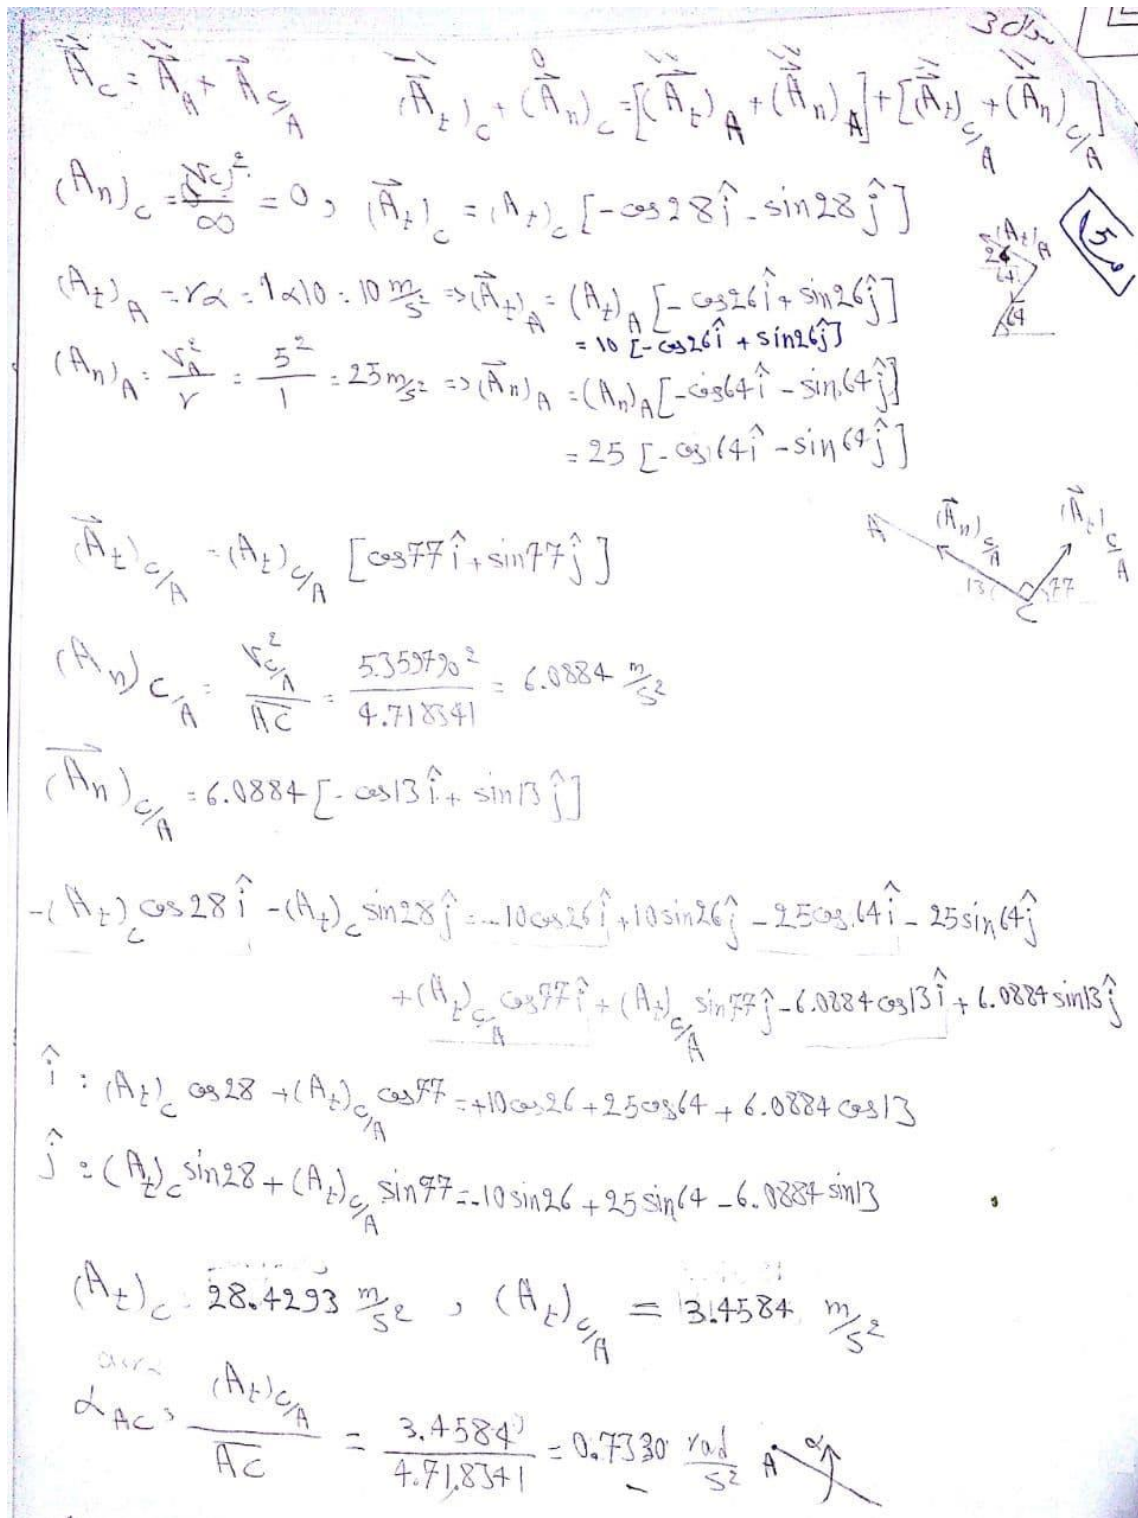 $\vec{A}_C = \vec{A}_A + \vec{A}_{C/A}$ $(\vec{A}_t)_C + (\vec{A}_n)_C^{0} = [(\vec{A}_t)_A + (\vec{A}_n)_A] + [(\vec{A}_t)_{C/A} + (\vec{A}_n)_{C/A}]$
$(A_n)_C = \frac{(V_C)^2}{\infty} = 0$, $(\vec{A}_t)_C = (A_t)_C [-\cos 28\hat{i} - \sin 28\hat{j}]$
$(A_t)_A$ 26 64 64
15
$(A_t)_A = r\alpha = 1 \times 10 = 10 \frac{m}{s^2} \Rightarrow (\vec{A}_t)_A = (A_t)_A [-\cos 26\hat{i} + \sin 26\hat{j}]$
$= 10 [-\cos 26\hat{i} + \sin 26\hat{j}]$
$(A_n)_A = \frac{V_A^2}{r} = \frac{5^2}{1} = 25 \frac{m}{s^2} \Rightarrow (\vec{A}_n)_A = (A_n)_A [-\cos 64\hat{i} - \sin 64\hat{j}]$
$= 25 [-\cos 64\hat{i} - \sin 64\hat{j}]$
$(\vec{A}_t)_{C/A} = (A_t)_{C/A} [\cos 77\hat{i} + \sin 77\hat{j}]$
A $(\vec{A}_n)_{C/A}$ $(\vec{A}_t)_{C/A}$ 13 77 C
$(A_n)_{C/A} = \frac{V_{C/A}^2}{\overline{AC}} = \frac{5.359790^2}{4.718341} = 6.0884 \frac{m}{s^2}$
$(\vec{A}_n)_{C/A} = 6.0884 [-\cos 13\hat{i} + \sin 13\hat{j}]$
$-(A_t)_C \cos 28\hat{i} - (A_t)_C \sin 28\hat{j} = -10\cos 26\hat{i} + 10\sin 26\hat{j} - 25\cos 64\hat{i} - 25\sin 64\hat{j}$
$+ (A_t)_{C/A} \cos 77\hat{i} + (A_t)_{C/A} \sin 77\hat{j} - 6.0884\cos 13\hat{i} + 6.0884\sin 13\hat{j}$
$\hat{i}: (A_t)_C \cos 28 + (A_t)_{C/A} \cos 77 = +10\cos 26 + 25\cos 64 + 6.0884\cos 13$
$\hat{j}: (A_t)_C \sin 28 + (A_t)_{C/A} \sin 77 = -10\sin 26 + 25\sin 64 - 6.0884\sin 13$
$(A_t)_C = 28.4293 \frac{m}{s^2}$, $(A_t)_{C/A} = 3.4584 \frac{m}{s^2}$
$\alpha_{AC} = \frac{(A_t)_{C/A}}{\overline{AC}} = \frac{3.4584}{4.718341} = 0.7330 \frac{rad}{s^2}$ A α